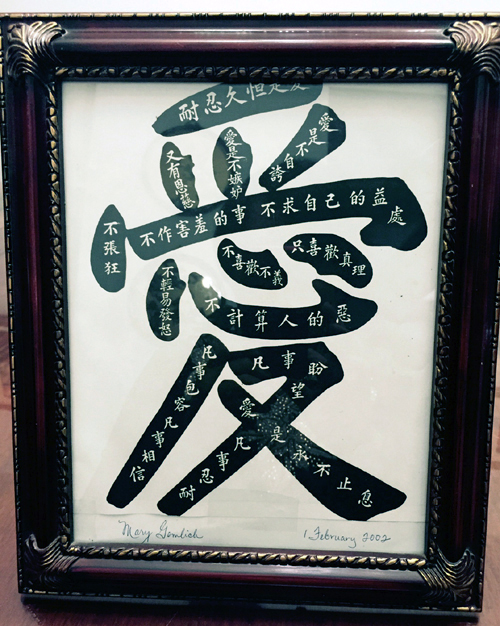 愛是恒久忍耐
又有恩慈
愛是不嫉妒
愛是不自誇
不張狂
不作害羞的事
不求自己的益處
不輕易發怒
不計算人的惡
不喜歡不義
只喜歡真理
凡事包容
凡事相信
凡事盼望
凡事忍耐
愛是永不止息
Mary
1 February 2002